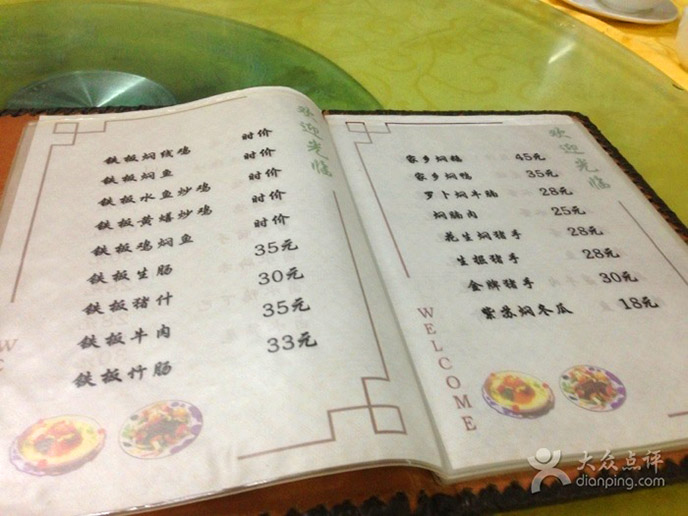 欢迎光临
铁板焖线鸡 时价
铁板焖鱼 时价
铁板水鱼炒鸡 时价
铁板黄鳝炒鸡 时价
铁板鸡焖鱼 时价
铁板生肠 35元
铁板猪什 30元
铁板牛肉 35元
铁板竹肠 33元
欢迎光临
家乡焖鹅 45元
家乡焖鸭 35元
萝卜焖牛腩 28元
焖腩肉 25元
花生焖猪手 28元
生摳猪手 28元
金牌猪手 30元
紫苏焖冬瓜 18元
WELCOME
大众点评
dianping.com